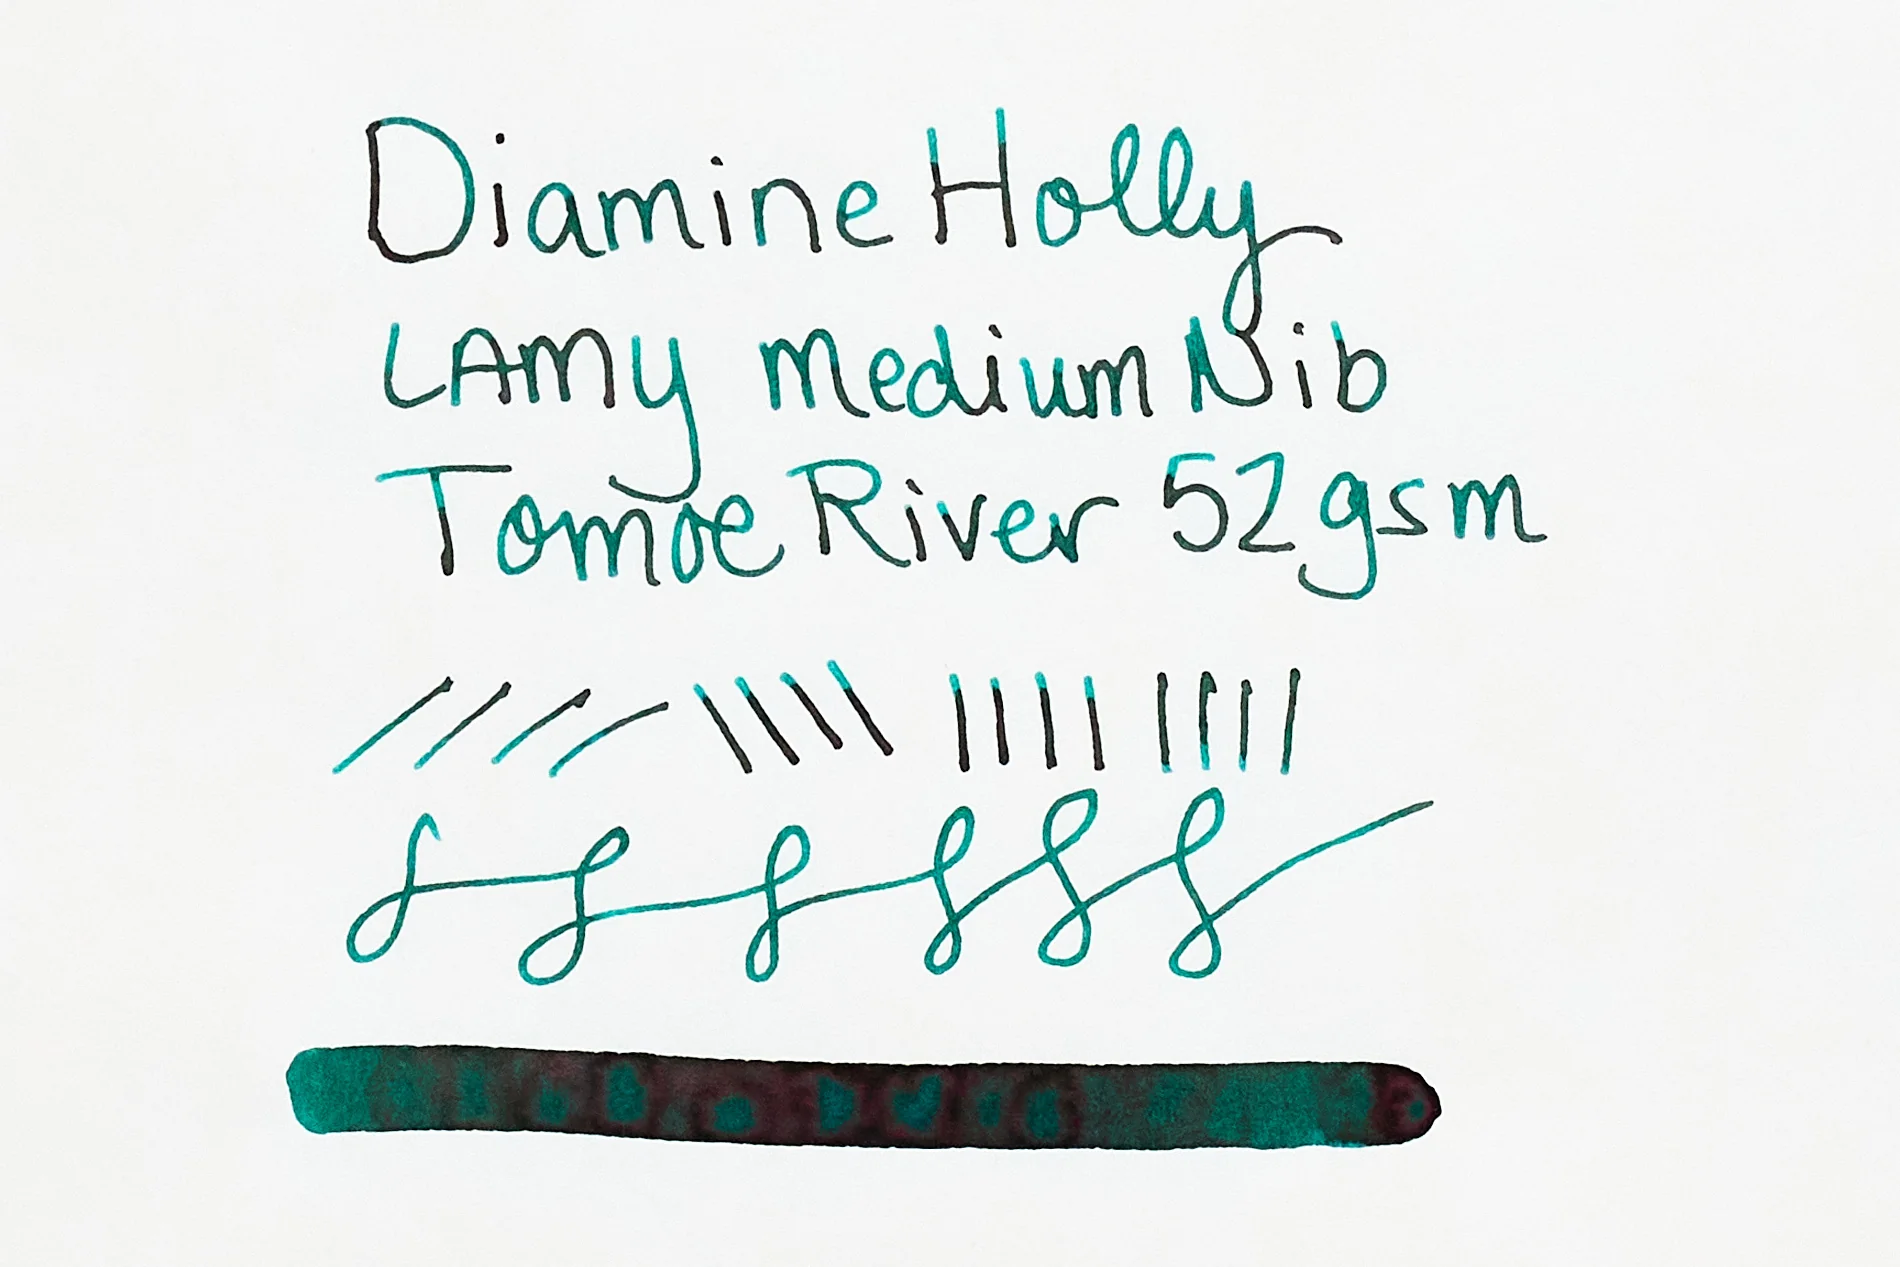 Diamine Holly
LAMY medium Nib
Tomoe River 52 gsm